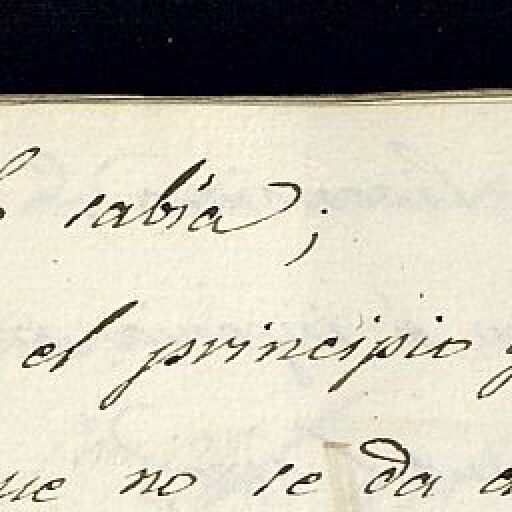 sabía;
el principio
que no se da